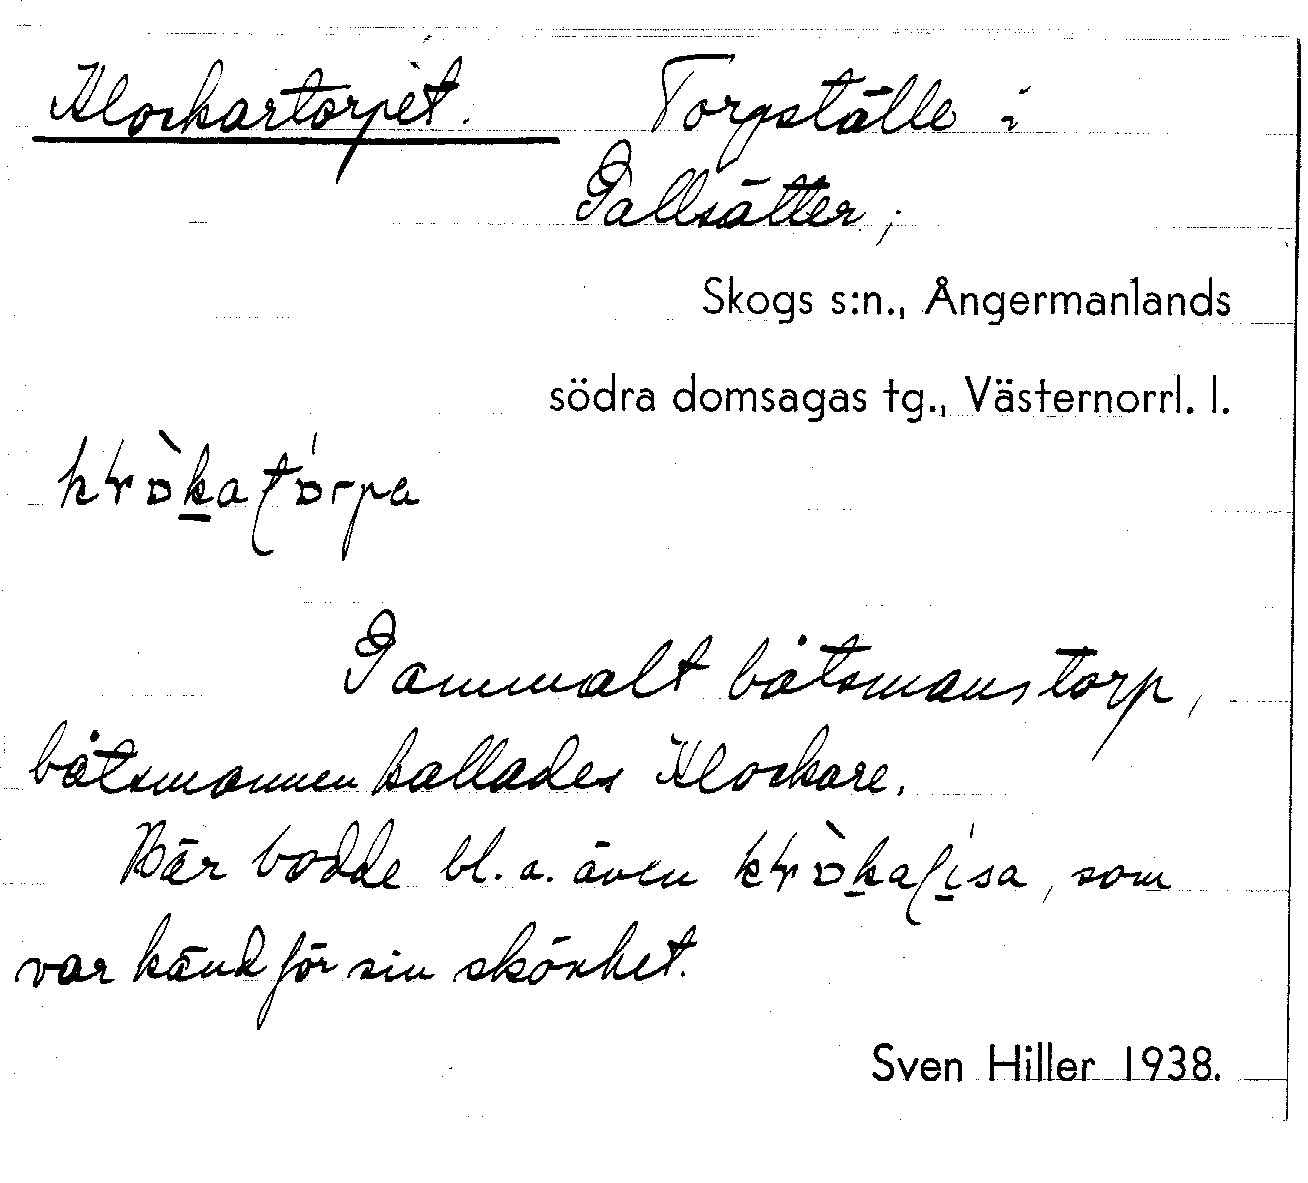 Klockartorpet. Torpställe i
Pallsätter,
Skogs s:n., Ångermanlands
södra domsagas tg., Västernorrl. l.
Gammalt båtsmanstorp,
båtsmannen kallades Klockare.
Här bodde bl. a. även som
var känd för sin skönhet.
Sven Hiller 1938.